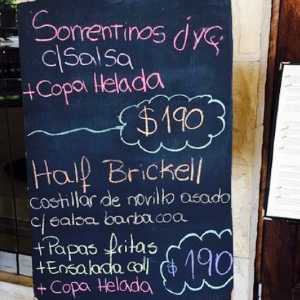 Sorrentinos jyq
c/Salsa
+ Copa Helada
$190
Half Brickell
Costillar de novillo asado
c/ salsa barbacoa
+ Papas fritas
+ Ensalada coll
+ Copa Helada
$190